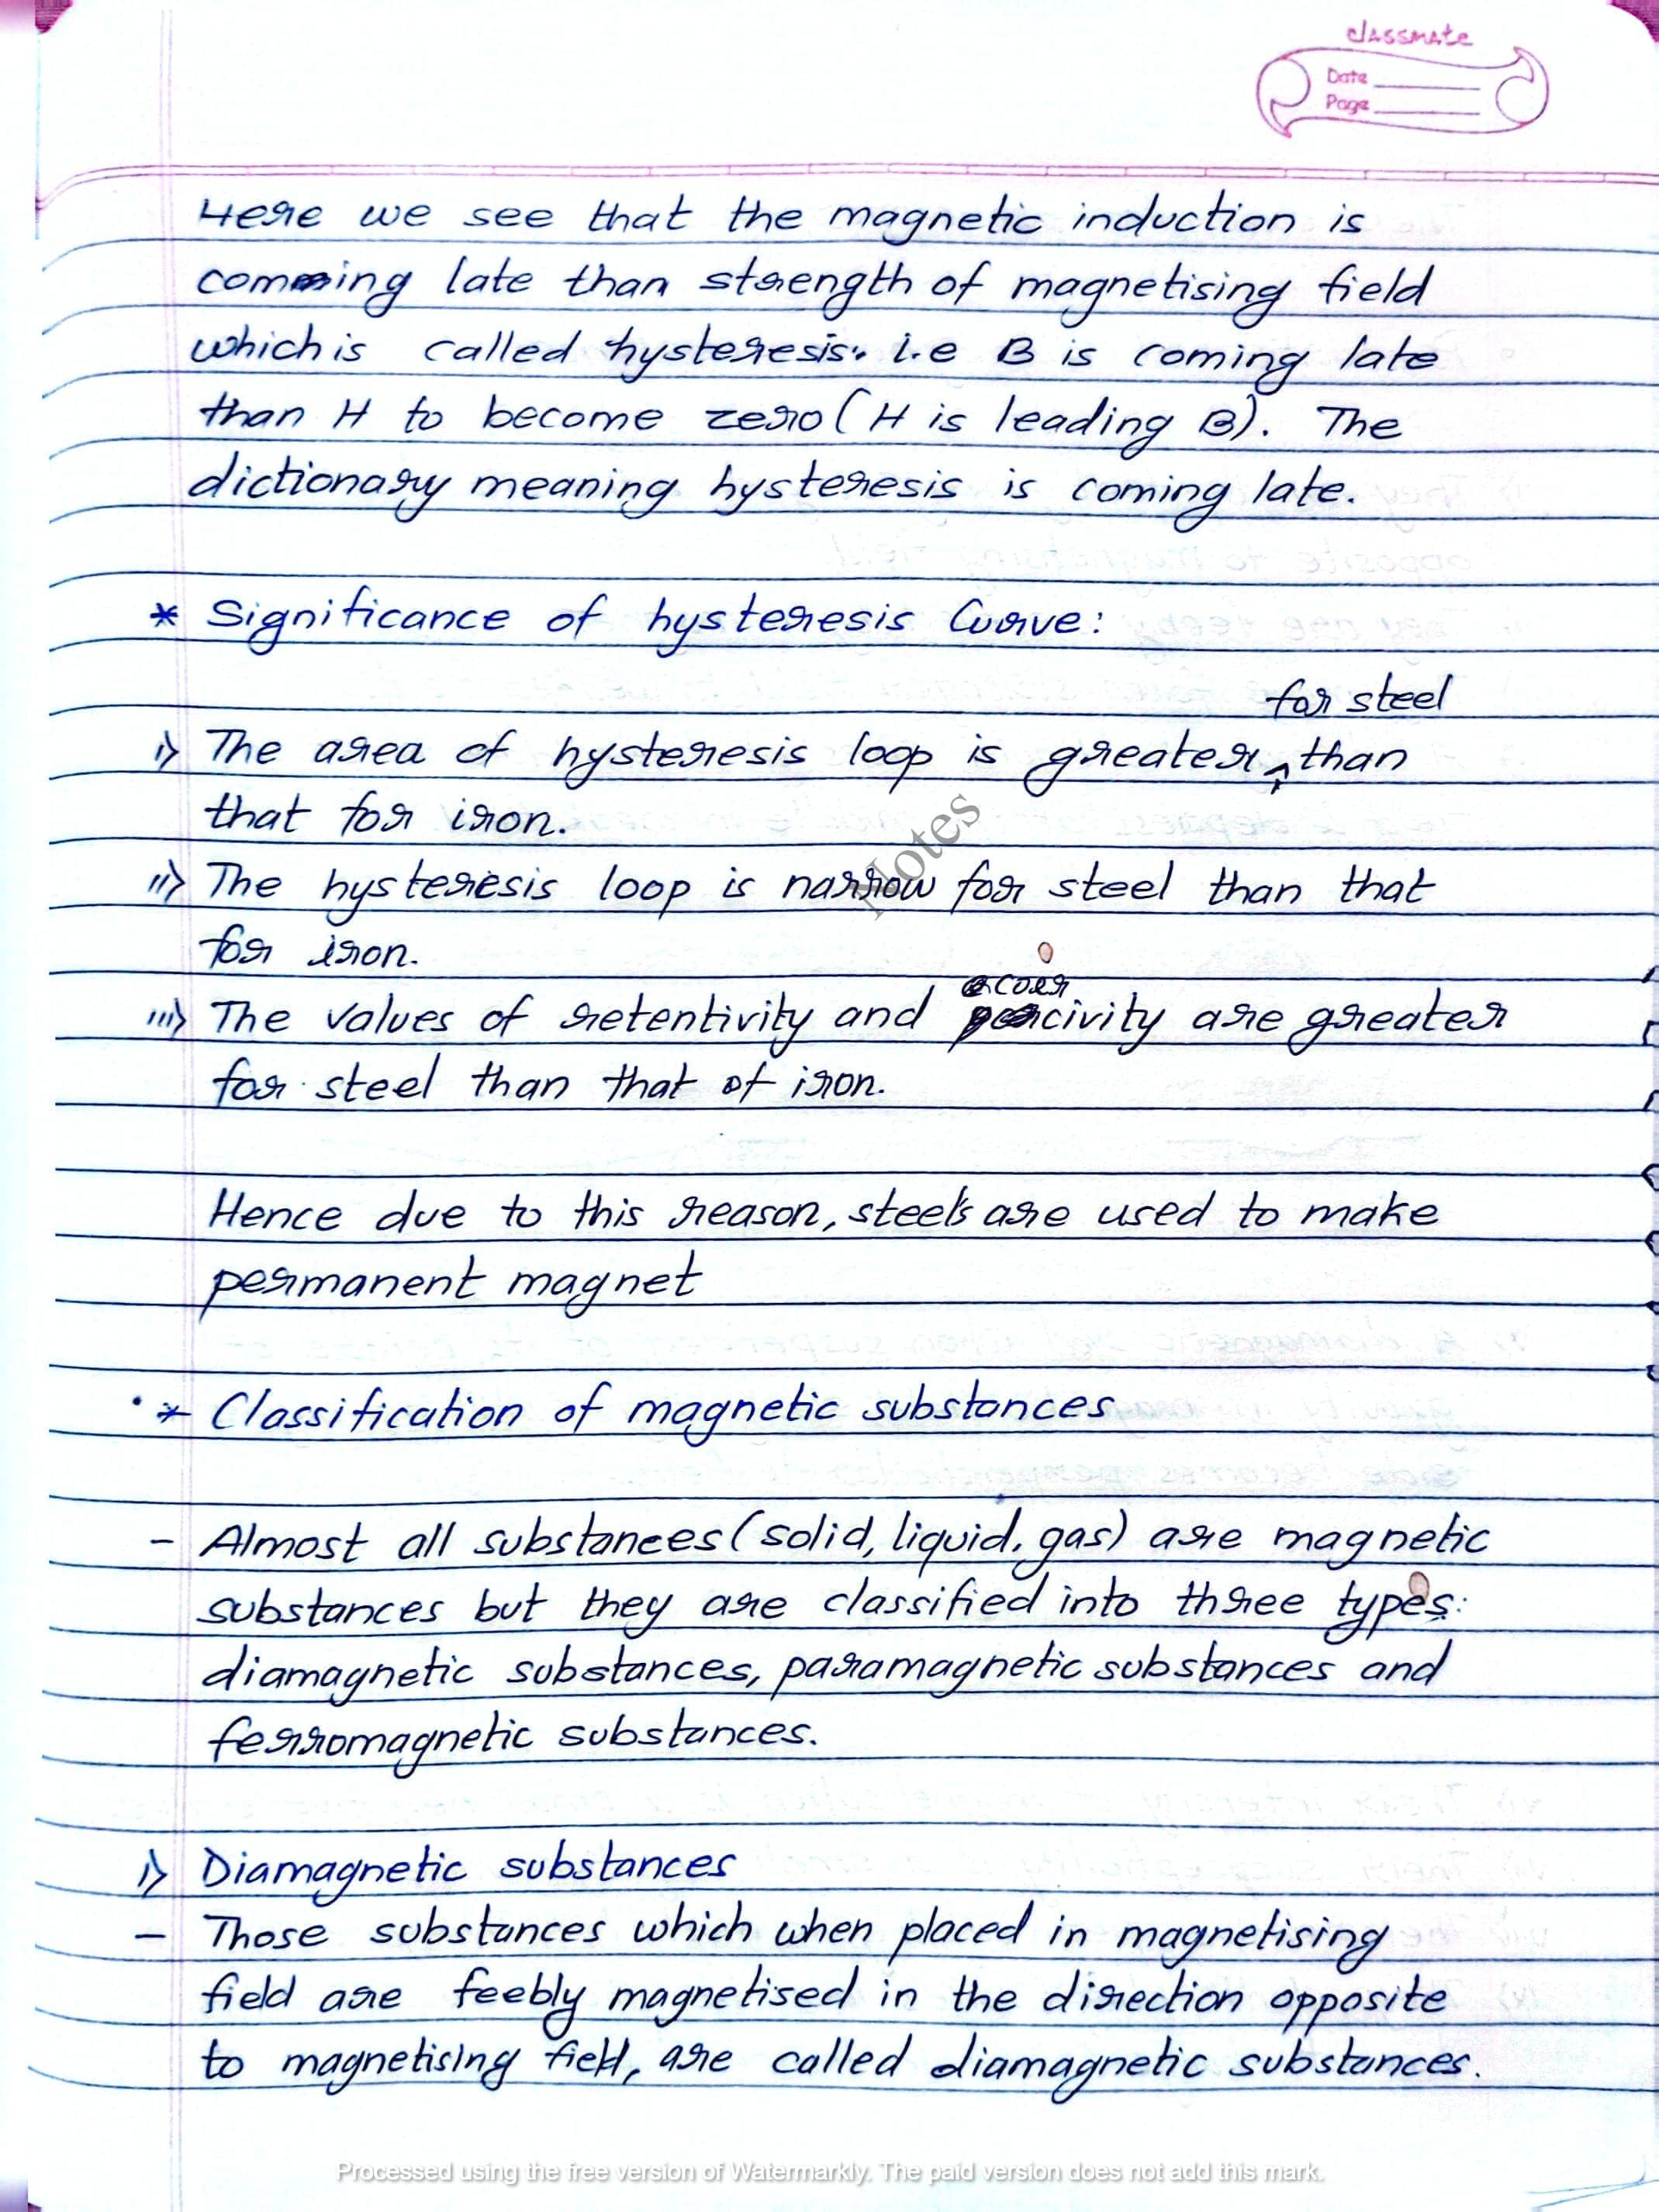 classmate
Date
Page
Here we see that the magnetic induction is
comming late than strength of magnetising field
which is called hysteresis. i.e B is coming late
than H to become zero (H is leading B). The
dictionary meaning hysteresis is coming late.
* Significance of hysteresis Curve:
for steel
i) The area of hysteresis loop is greater ^ than
that for iron.
ii) The hysteresis loop is narrow for steel than that
for iron.
coer
iii) The values of retentivity and civity are greater
for steel than that of iron.
Hence due to this reason, steels are used to make
permanent magnet
* Classification of magnetic substances
- Almost all substances (solid, liquid, gas) are magnetic
substances but they are classified into three types:
diamagnetic substances, paramagnetic substances and
ferromagnetic substances.
i) Diamagnetic substances
- Those substances which when placed in magnetising
field are feebly magnetised in the direction opposite
to magnetising field, are called diamagnetic substances.
Notes
Processed using the free version of Watermarkly. The paid version does not add this mark.